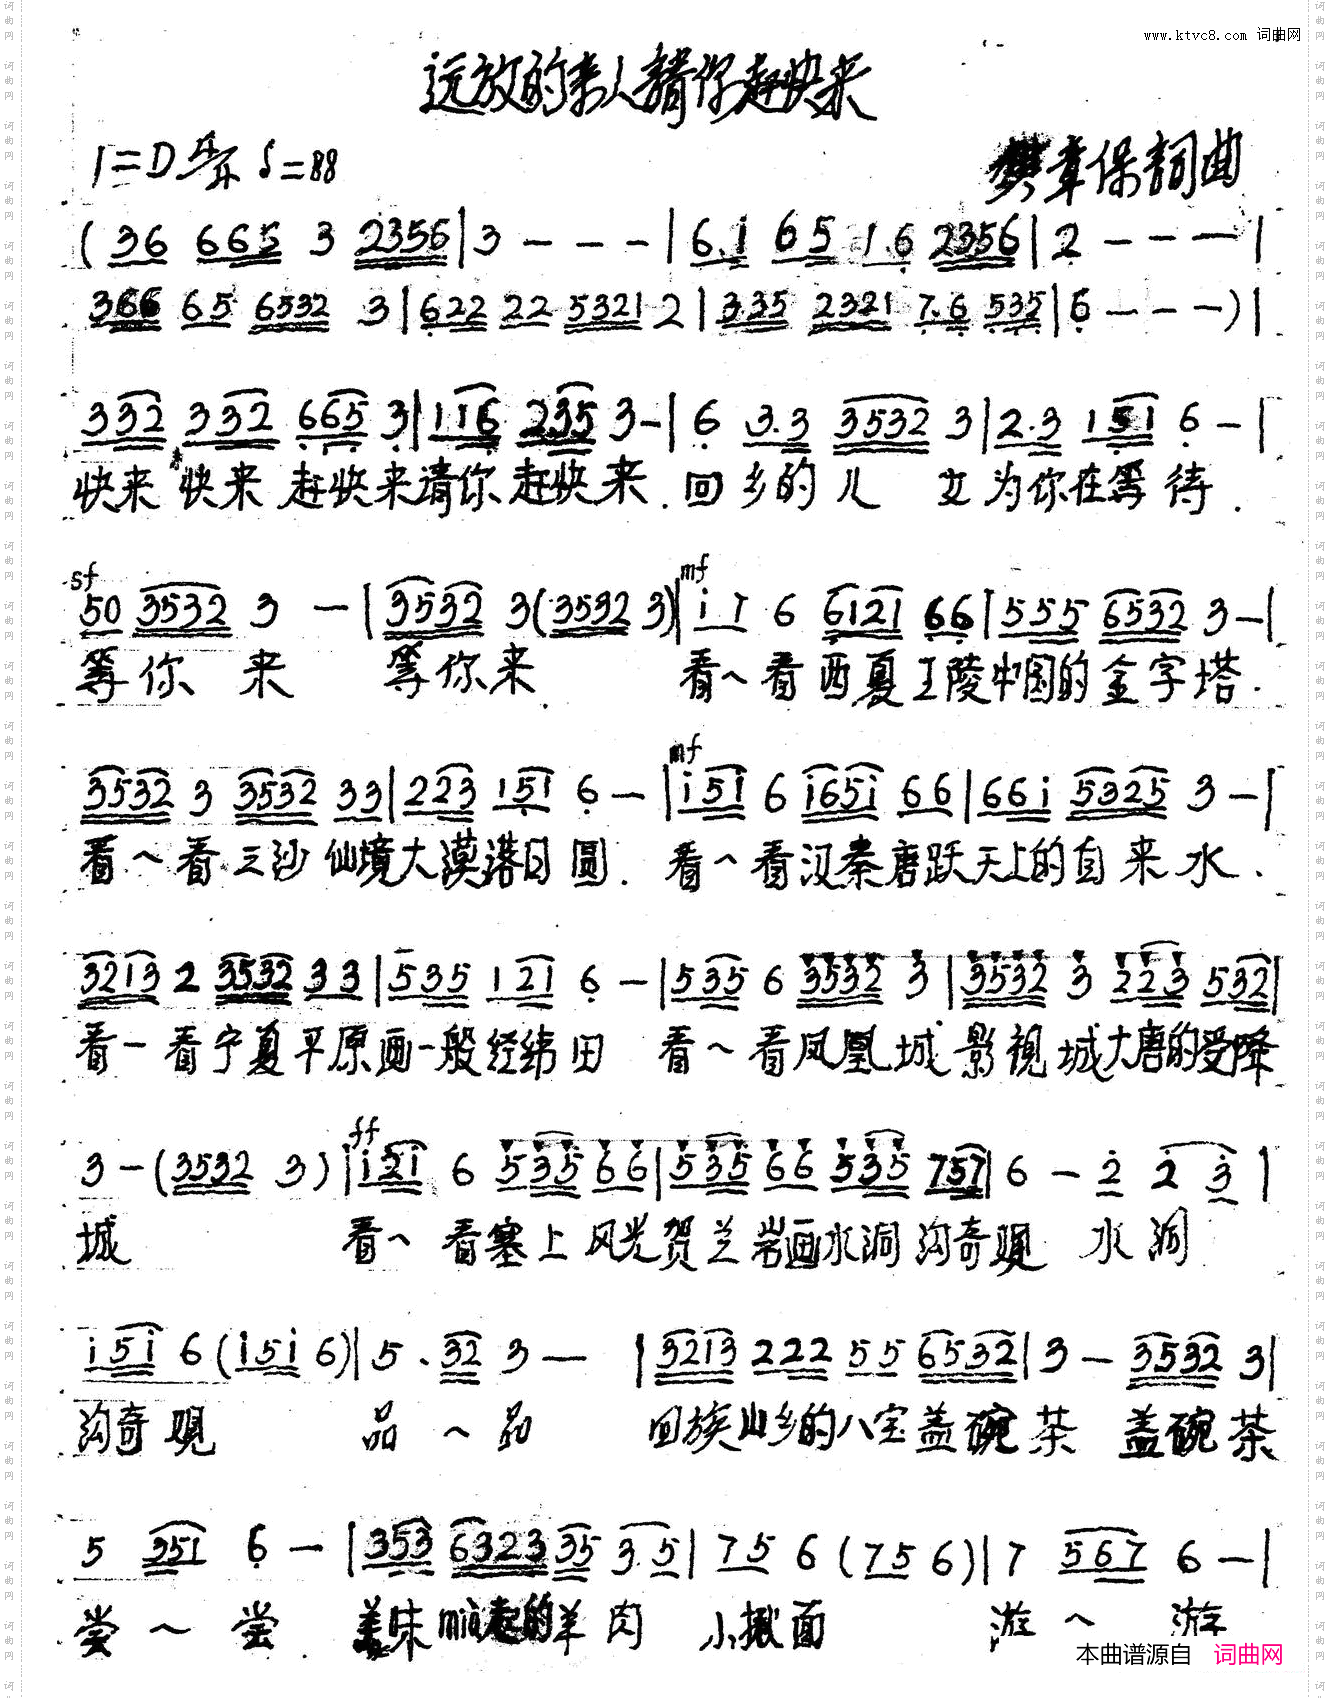 www.ktvc8.com 词曲网
远放的来人请你赶快来
1=D 4/4 ♩=88 樊章保詞曲
(36 665 3 2356|3 - - -|6.i 65 1.6 2356|2 - - -|
366 65 6532 3|622 22 53212|335 2321 7.6 535|6 - - -)|
332 332 665 3|116 235 3-|6 3.3 3532 3|2.3 151 6 -|
快来 快来 赶快来请你赶快来.回乡的儿 女为你在等待.
sf mf
50 3532 3 -|3532 3(3532 3)|i i 6 6121 66|555 6532 3-|
等你 来 等你来. 看~看西夏王陵中国的金字塔.
mf
3532 3 3532 33|223 151 6 -|i5i 6 i65i 66|66i 5325 3-|
看~看三沙仙境大漠落日圆.看~看汉秦唐跃天上的自来水.
3213 2 3532 33|535 121 6 -|535 6 3532 3|3532 3 223 532|
看一看宁夏平原画一般经纬田 看~看凤凰城影视城大唐的受降
ff
3-(3532 3)|i5i 6 535 66|535 66 535 757|6 - 2 2 3|
城 看~看塞上风光贺兰岩画水洞沟奇观 水洞
i5i 6(i5i 6)|5.32 3 -|3213 222 55 6532|3 - 3532 3|
沟奇观 品~品 回族山乡的八宝盖碗茶 盖碗茶
5 351 6 -|353 6323 35 3.5|75 6(75 6)|7 567 6 -|
尝~尝 美味 的羊肉 小揪面 游~游
本曲谱源自 词曲网